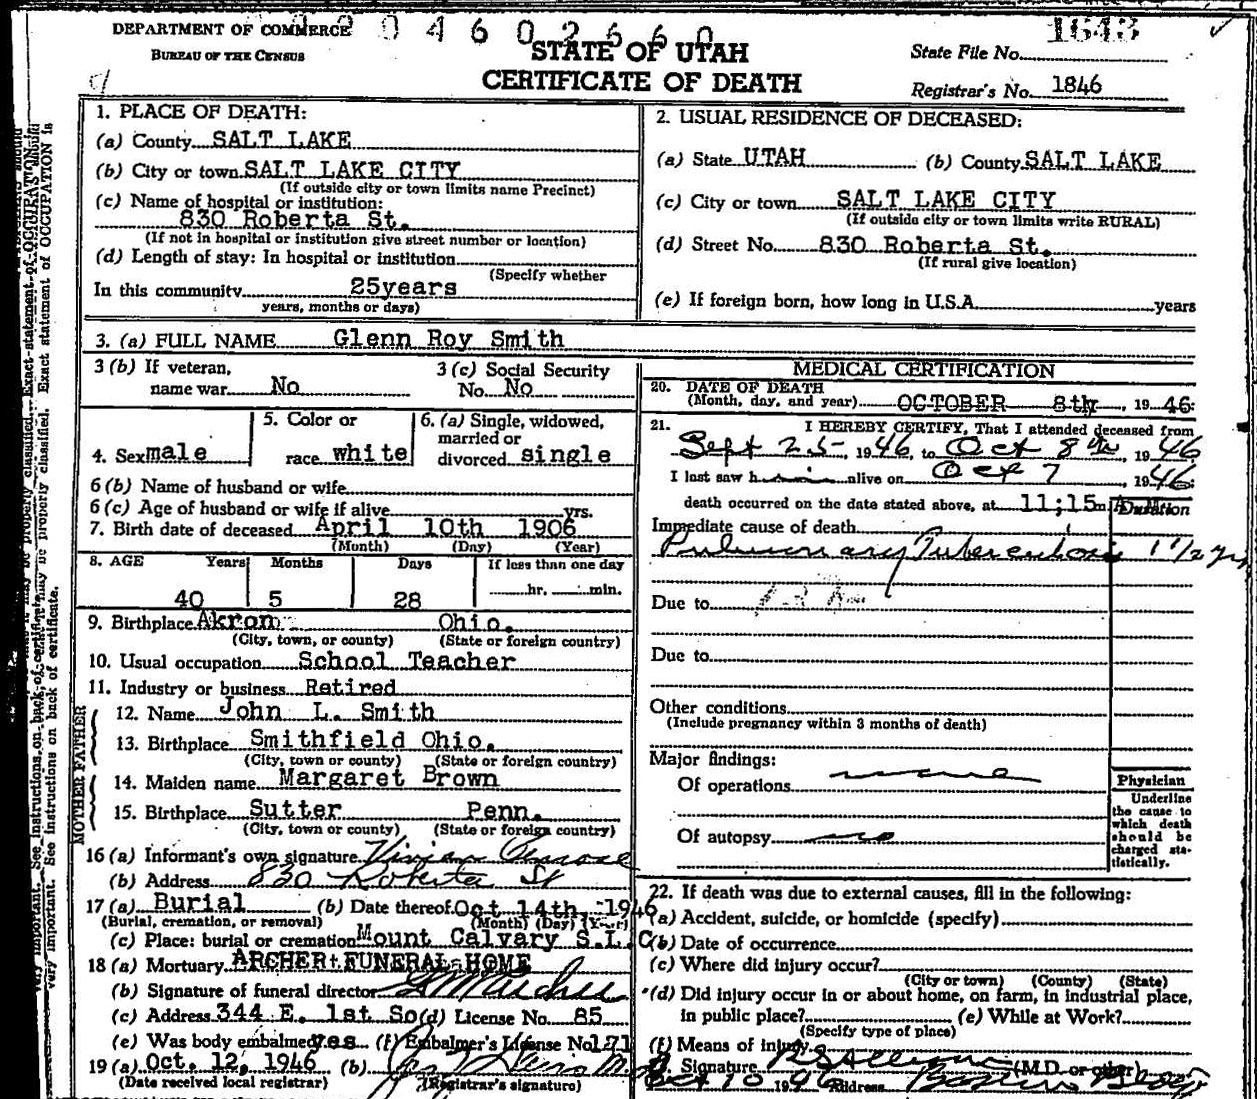 DEPARTMENT OF COMMERCE
BUREAU OF THE CENSUS
0 4 6 0 2 6 6 0
STATE OF UTAH
CERTIFICATE OF DEATH
State File No. 1643
Registrar's No. 1846
1. PLACE OF DEATH:
(a) County SALT LAKE
(b) City or town SALT LAKE CITY
(If outside city or town limits name Precinct)
(c) Name of hospital or institution:
830 Roberta St.
(If not in hospital or institution give street number or location)
(d) Length of stay: In hospital or institution
(Specify whether
In this community 25years
years, months or days)
2. USUAL RESIDENCE OF DECEASED:
(a) State UTAH (b) County SALT LAKE
(c) City or town SALT LAKE CITY
(If outside city or town limits write RURAL)
(d) Street No. 830 Roberta St.
(If rural give location)
(e) If foreign born, how long in U.S.A. years
3. (a) FULL NAME Glenn Roy Smith
3 (b) If veteran,
name war No
3 (c) Social Security
No. No
4. Sex male
5. Color or
race white
6. (a) Single, widowed,
married or
divorced single
6 (b) Name of husband or wife
6 (c) Age of husband or wife if alive yrs.
7. Birth date of deceased April 10th 1906
(Month) (Day) (Year)
8. AGE Years Months Days If less than one day
40 5 28 hr. min.
9. Birthplace Akron Ohio.
(City, town, or county) (State or foreign country)
10. Usual occupation School Teacher
11. Industry or business Retired
FATHER
12. Name John L. Smith
13. Birthplace Smithfield Ohio.
(City, town or county) (State or foreign country)
MOTHER
14. Maiden name Margaret Brown
15. Birthplace Sutter Penn.
(City, town or county) (State or foreign country)
16 (a) Informant's own signature Vivian
(b) Address 830 Roberta St
17 (a) Burial (b) Date thereof Oct 14th, 1946
(Burial, cremation, or removal) (Month) (Day) (Year)
(c) Place: burial or cremation Mount Calvary S.L.C
18 (a) Mortuary ARCHER FUNERAL HOME
(b) Signature of funeral director
(c) Address 344 E. 1st So (d) License No. 85
(e) Was body embalmed? yes (f) Embalmer's License No. 171
19 (a) Oct. 12, 1946 (b)
(Date received local registrar) (Registrar's signature)
MEDICAL CERTIFICATION
20. DATE OF DEATH
(Month, day, and year) OCTOBER 8th, 1946:
21. I HEREBY CERTIFY, That I attended deceased from
Sept 25, 1946, to Oct 8th, 1946
I last saw him alive on Oct 7 1946:
death occurred on the date stated above, at 11;15 m. Duration
Immediate cause of death
Pulmonary Tuberculosis 1 1/2 yrs
Due to
Due to
Other conditions
(Include pregnancy within 3 months of death)
Major findings:
Of operations none
Of autopsy no
Physician
Underline
the cause to
which death
should be
charged sta-
tistically.
22. If death was due to external causes, fill in the following:
(a) Accident, suicide, or homicide (specify)
(b) Date of occurrence
(c) Where did injury occur?
(City or town) (County) (State)
(d) Did injury occur in or about home, on farm, in industrial place,
in public place? (e) While at Work?
(Specify type of place)
(f) Means of injury
Signature (M.D. or other)
Oct 10 1946 Address